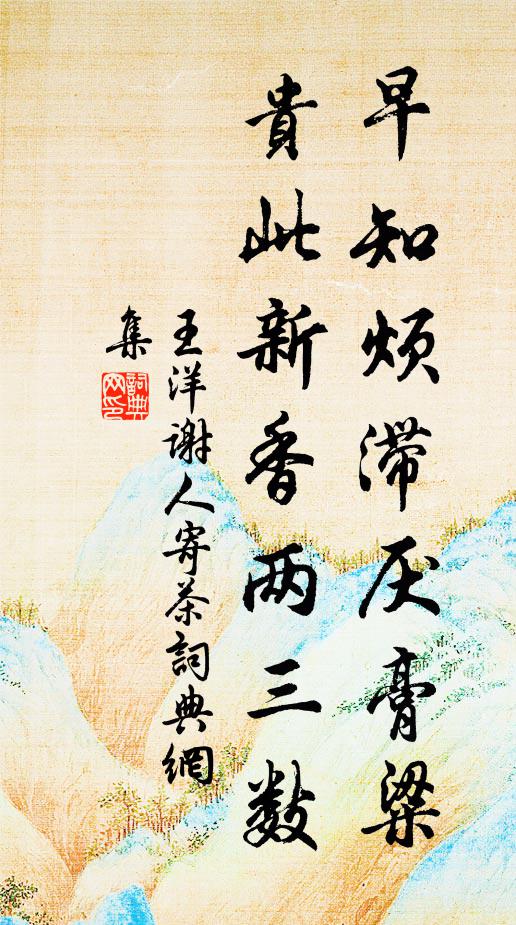 早知烦滞厌膏粱
贵此新香两三数
王洋谢人寄茶詞典網
集
詞典網印